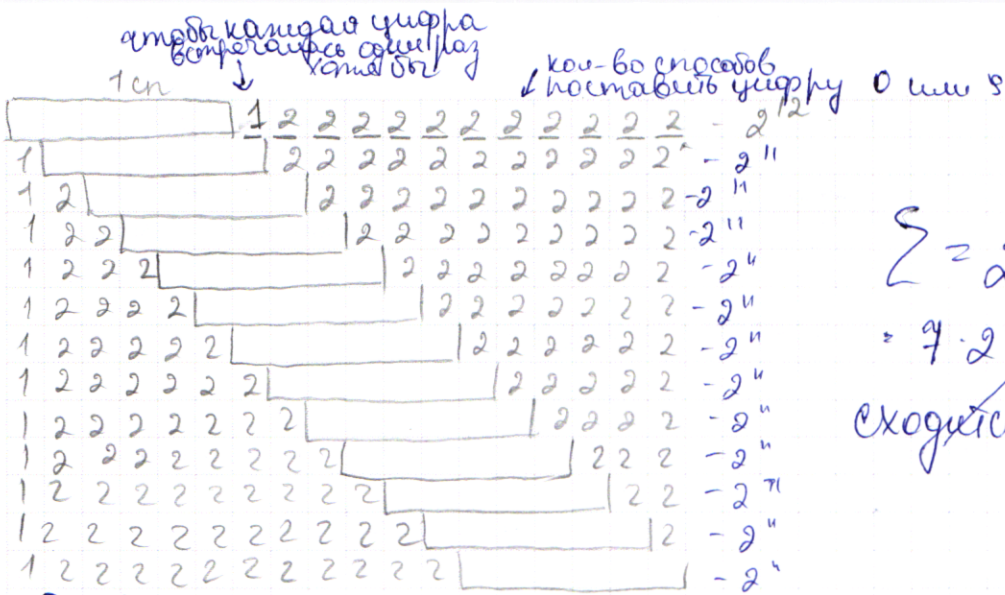 чтобы каждая цифра
встречалась один раз
хотя бы
1 сп
кол-во способов
поставить цифру 0 или
1 2 2 2 2 2 2 2 2 2 2 2 - 2¹²
1 2 2 2 2 2 2 2 2 2 2 2 - 2¹¹
1 2 2 2 2 2 2 2 2 2 2 2 - 2¹¹
1 2 2 2 2 2 2 2 2 2 2 2 - 2¹¹
1 2 2 2 2 2 2 2 2 2 2 2 - 2¹¹
1 2 2 2 2 2 2 2 2 2 2 2 - 2¹¹
1 2 2 2 2 2 2 2 2 2 2 2 - 2¹¹
1 2 2 2 2 2 2 2 2 2 2 2 - 2¹¹
1 2 2 2 2 2 2 2 2 2 2 2 - 2¹¹
1 2 2 2 2 2 2 2 2 2 2 2 - 2¹¹
1 2 2 2 2 2 2 2 2 2 2 2 - 2¹¹
1 2 2 2 2 2 2 2 2 2 2 2 - 2¹¹
1 2 2 2 2 2 2 2 2 2 2 2 - 2¹¹
Σ = 2
= 7 · 2